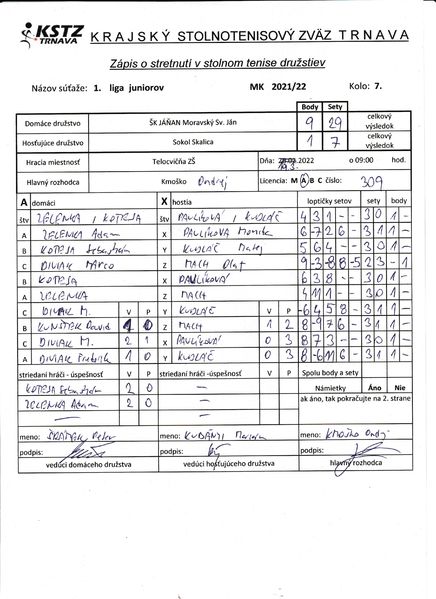 KSTZ
TRNAVA
KRAJSKÝ STOLNOTENISOVÝ ZVÄZ TRNAVA
Zápis o stretnutí v stolnom tenise družstiev
Názov súťaže: 1. liga juniorov MK 2021/22 Kolo: 7.
Body Sety
Domáce družstvo ŠK JÁŇAN Moravský Sv. Ján 9 29 celkový výsledok
Hosťujúce družstvo Sokol Skalica 1 7 celkový výsledok
Hracia miestnosť Telocvičňa ZŠ Dňa: 2022 o 09:00 hod.
Hlavný rozhodca Kmoško Ondrej Licencia: M A B C číslo: 309
A domáci X hostia loptičky setov sety body
štv ZELENKA / KOTEJA štv PAVLÍKOVÁ / KUDLÁČ 4 3 1 - - 3 0 1 -
A ZELENKA Adam X PAVLÍKOVÁ Monika 6 -7 2 6 - 3 1 1 -
B KOTEJA Sebastián Y KUDLÁČ Matej 5 6 4 - - 3 0 1 -
C DIVIAK Marco Z MACH 9 -3 -8 8 -5 2 3 - 1
B KOTEJA X PAVLÍKOVÁ 6 3 8 - - 3 0 1 -
A ZELENKA Z MACH 4 11 1 - - 3 0 1 -
C DIVIAK M. V P Y KUDLÁČ V P -6 4 5 8 - 3 1 1 -
B KUNŠTEK David 1 0 Z MACH 1 2 8 -9 7 6 - 3 1 1 -
C DIVIAK M. 2 1 X PAVLÍKOVÁ 0 3 8 7 3 - - 3 0 1 -
A DIVIAK 1 0 Y KUDLÁČ 0 3 8 -6 11 6 - 3 1 1 -
striedaní hráči - úspešnosť striedaní hráči -úspešnosť Spolu body a sety
KOTEJA Sebastián 2 0 — Námietky Áno Nie
ZELENKA Adam 2 0 — ak áno, tak pokračujte na 2. strane
— —
meno: Peter meno: KUBÁNYI Marian meno: Kmoško Ondrej
podpis: podpis: podpis:
vedúci domáceho družstva vedúci hosťujúceho družstva hlavný rozhodca